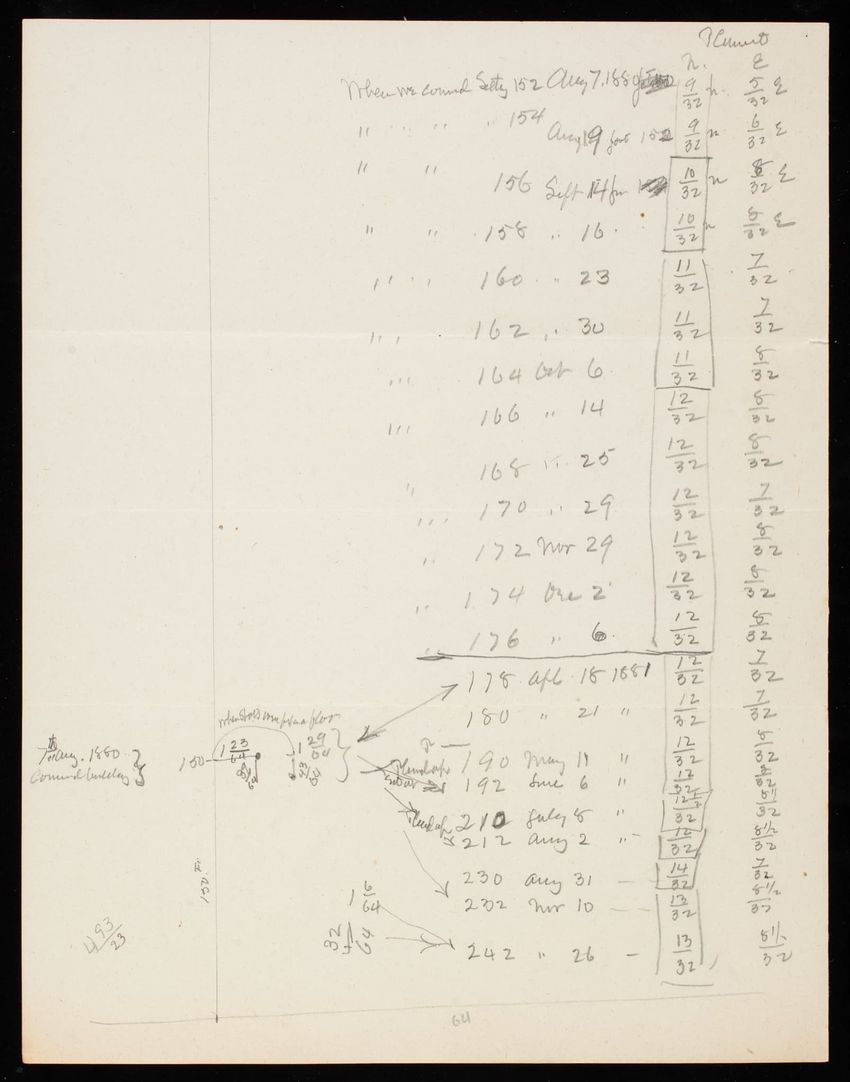 Plummet
N. E
When we commd Setg 152 Aug 7, 1880 9/32 n. 5/32 E
" " " " 154 Aug 19 for 152 9/32 n 6/32 E
" " 156 Sept 14 10/32 n 8/32 E
" " 158 " 16 10/32 n 8/32 E
" " 160 " 23 11/32 7/32
" " 162 " 30 11/32 7/32
" " 164 Oct 6 11/32 8/32
" " 166 " 14 12/32 8/32
" 168 " 25 12/32 8/32
" " 170 " 29 12/32 7/32
" 172 Nov 29 12/32 8/32
" 174 Dec 2 12/32 8/32
" 176 " 6 12/32 8/32
178 Apl 18 1881 12/32 7/32
180 " 21 " 12/32 7/32
190 May 11 " 12/32 8/32
192 June 6 " 12/32 8/32
210 July 8 " 12 1/2/32 8 1/2/32
212 Aug 2 " 12/32 8 1/2/32
230 Aug 31 — 14/32 7/32
232 Nov 10 — 13/32 8 1/2/32
242 " 26 — 13/32 8 1/2/32
Aug. 1880
150 1 23/64 1 29/64
Plumb up
Plumb up
150 ft.
1 6/64
32
64
493/23
64